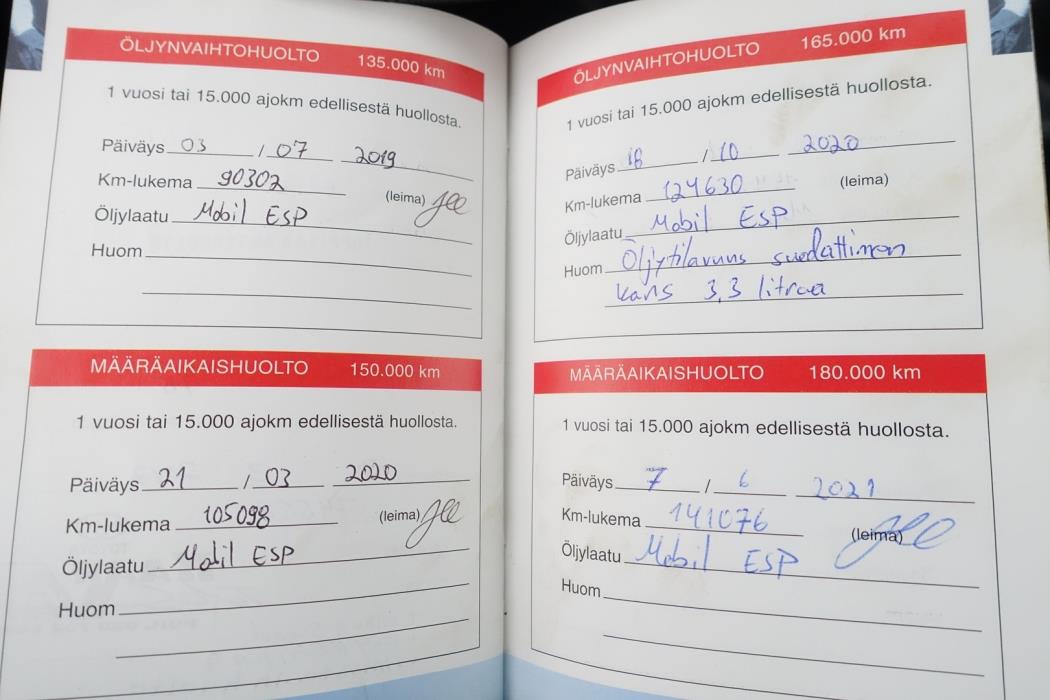 ÖLJYNVAIHTOHUOLTO 135.000 km
1 vuosi tai 15.000 ajokm edellisestä huollosta.
Päiväys 03 / 07 2019
Km-lukema 90302 (leima)
Öljylaatu Mobil ESP
Huom
MÄÄRÄAIKAISHUOLTO 150.000 km
1 vuosi tai 15.000 ajokm edellisestä huollosta.
Päiväys 21 / 03 2020
Km-lukema 105098 (leima)
Öljylaatu Mobil ESP
Huom
ÖLJYNVAIHTOHUOLTO 165.000 km
1 vuosi tai 15.000 ajokm edellisestä huollosta.
Päiväys 18 / 10 2020
Km-lukema 124630 (leima)
Öljylaatu Mobil ESP
Huom Öljytilavuus suodattimen
kans 3,3 litraa
MÄÄRÄAIKAISHUOLTO 180.000 km
1 vuosi tai 15.000 ajokm edellisestä huollosta.
Päiväys 7 / 6 2021
Km-lukema 141076 (leima)
Öljylaatu Mobil ESP
Huom